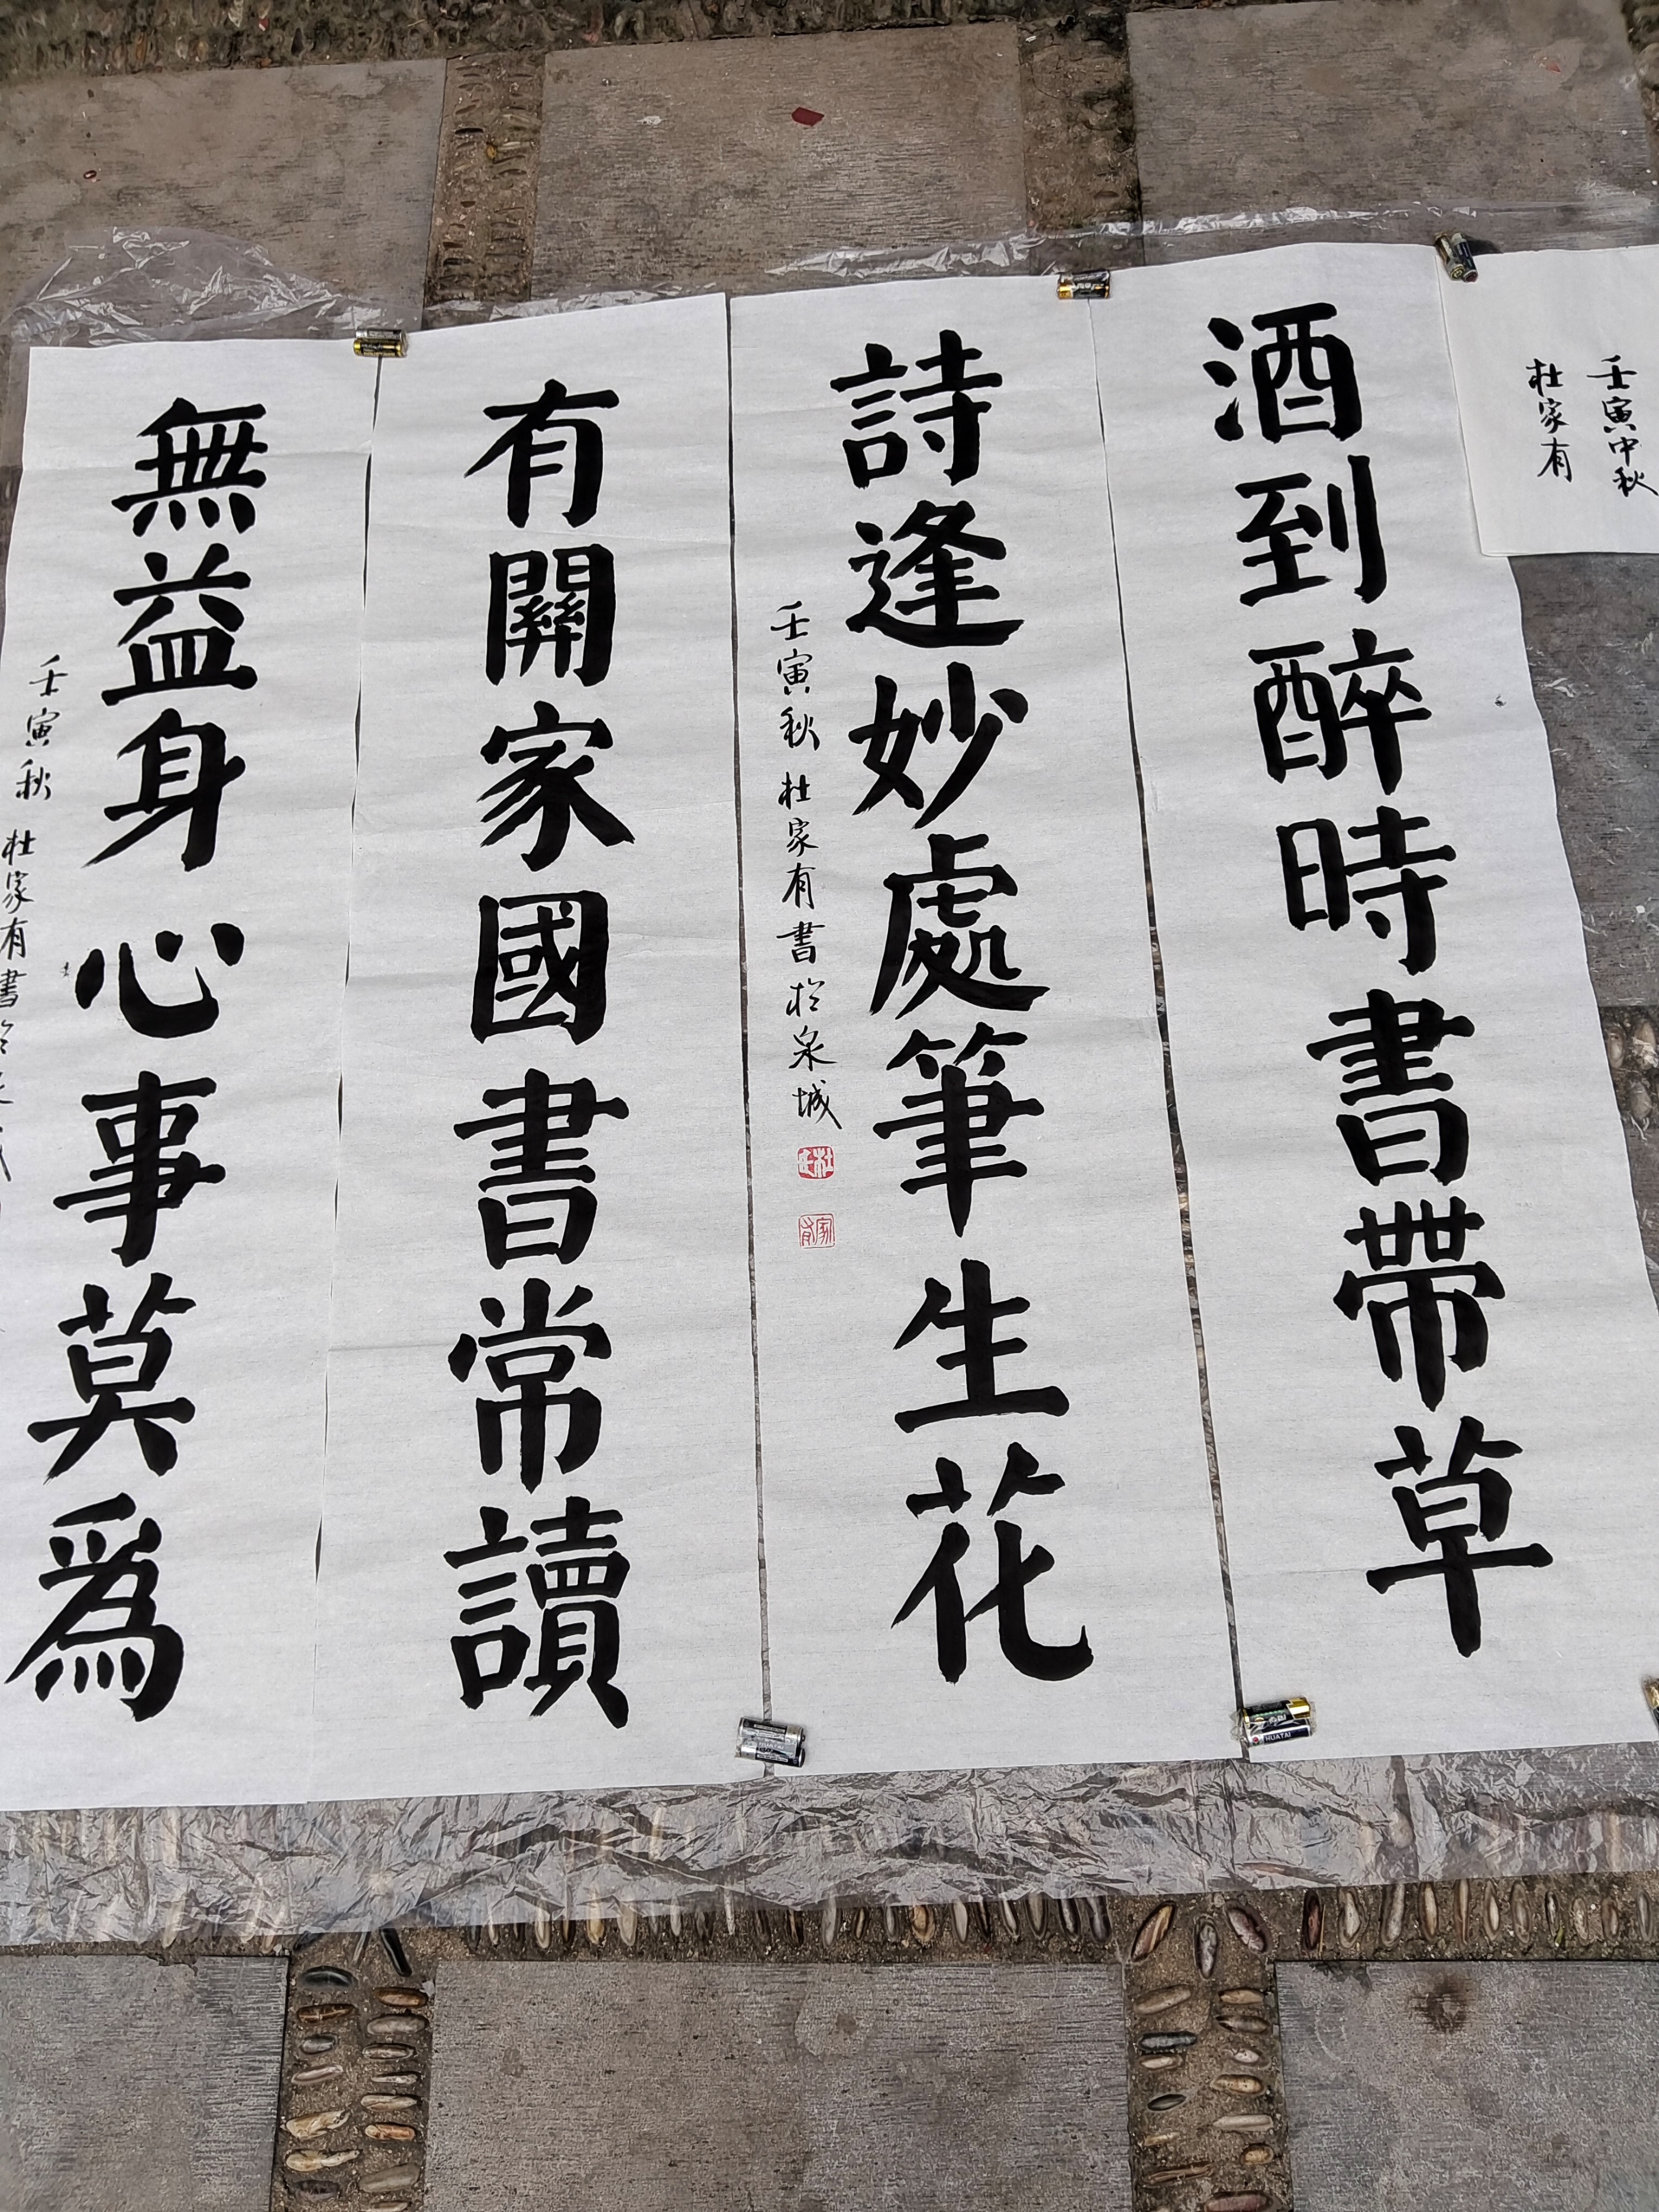 壬寅中秋
杜家有
酒到醉時書帶草
詩逢妙處筆生花
壬寅秋杜家有書於泉城
杜
家有
有關家國書常讀
無益身心事莫爲
壬寅秋杜家有書於
HUATAI
HUATAI